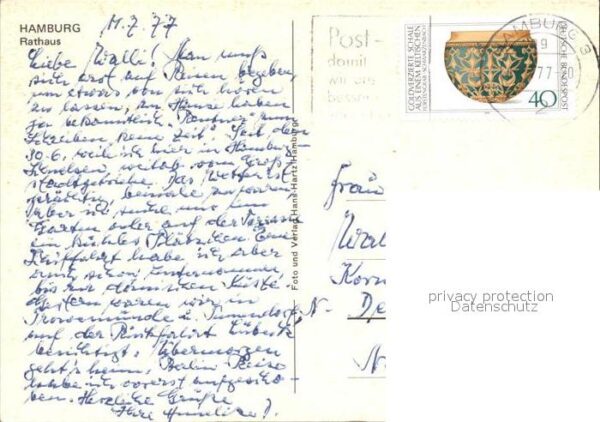 HAMBURG
Rathaus
11.7.77
Liebe Walli! Man muß
sich erst auf Reisen begeben,
um etwas von sich hören
zu lassen, zu Hause haben
ja bekanntlich "Rentner" zum
Schreiben "keine Zeit". Seit dem
30.6. weile ich hier in Hamburg
weitab vom Groß-
stadtgetriebe. Das Wetter ist
prächtig, beinahe zu warm.
Aber ich suche mir im
Garten oder auf der Terrasse
ein kühles Plätzchen. Eine
Schiffahrt habe ich aber
auch schon unternommen,
bis zur dänischen Küste.
Gestern waren wir in
Travemünde u. Timmendorf,
auf der Rückfahrt Lübeck
besichtigt. Übermorgen
geht's heim. Berlin-Reise
habe ich vorerst aufgescho-
ben. Herzliche Grüße
Ihre
Foto und Verlag Hans Hartz, Hamburg
Post-
damit
wir
besser
GOLDVERZIERTE SCHALE
AUS EINEM KELTISCHEN
FÜRSTENGRAB · SCHWARZENBACH
40
DEUTSCHE BUNDESPOST
HAMBURG
77-20
Frau
Walli
Korn
N-
De
N.
privacy protection
Datenschutz